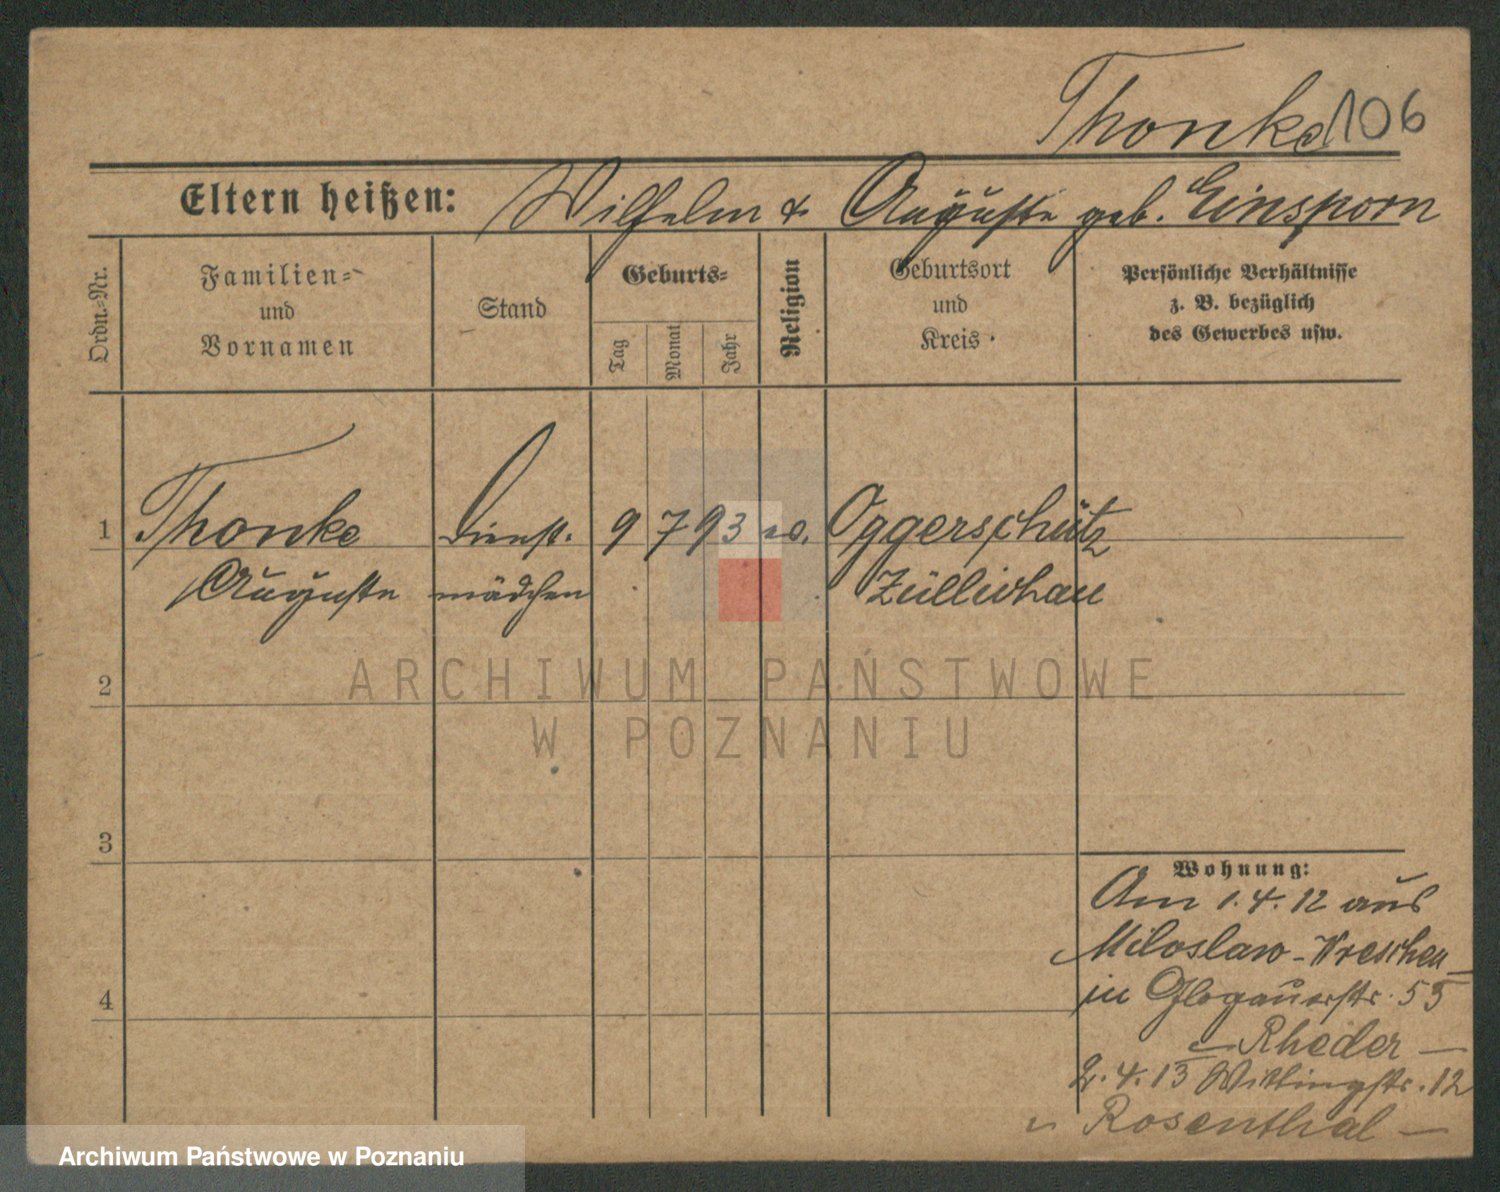 Thonke 106
Eltern heißen: Wilhelm & Auguste geb. Einsporn
Ordn.-Nr.
Familien-
und
Vornamen
Stand
Geburts-
Tag
Monat
Jahr
Religion
Geburtsort
und
Kreis
Persönliche Verhältnisse
z. B. bezüglich
des Gewerbes usw.
1 Thonke Dienst- 9 7 93 ev. Oggerschütz
Auguste mädchen Züllichau
2
3
4
Wohnung:
Am 1.4.12 aus
Miloslaw-Wreschen
in Glogauerstr. 55
Rheder –
2.4.13 Wittingstr. 12
Rosenthal –
ARCHIWUM PAŃSTWOWE
W POZNANIU
Archiwum Państwowe w Poznaniu